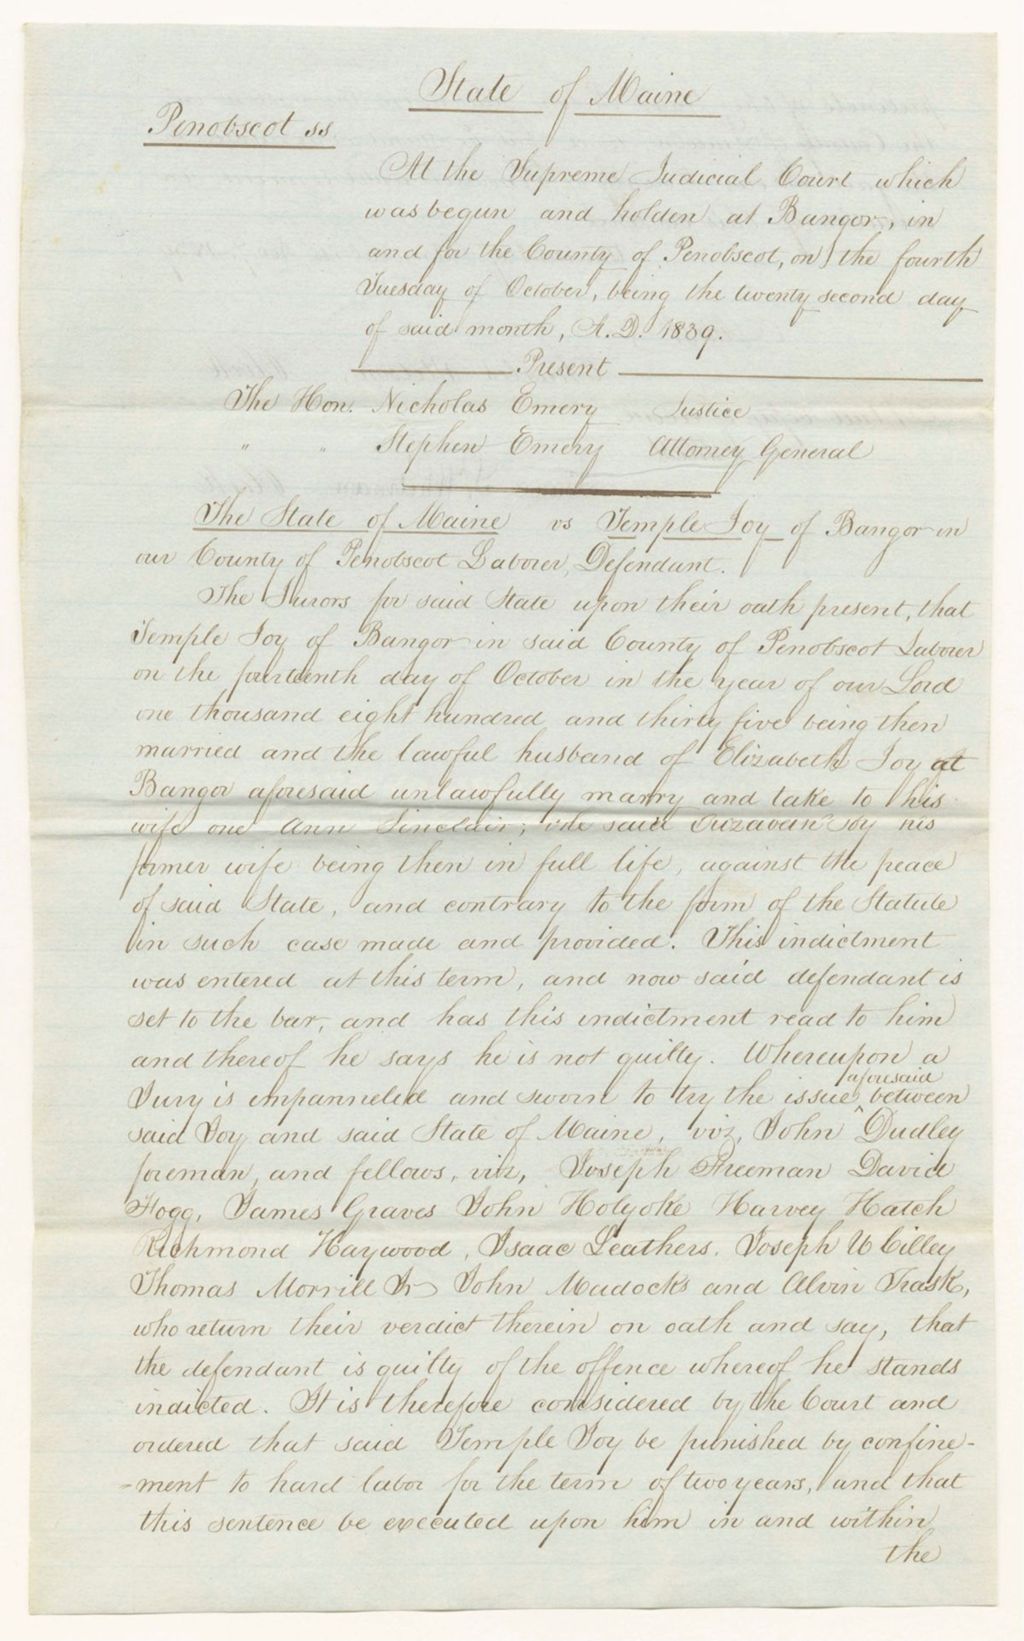 State of Maine
Penobscot ss
At the Supreme Judicial Court which
was begun and holden at Bangor, in
and for the County of Penobscot, on the fourth
Tuesday of October, being the twenty second day
of said month, A.D. 1839.
Present
The Hon. Nicholas Emery Justice
" " Stephen Emery Attorney General
The State of Maine vs Temple Joy of Bangor in
our County of Penobscot Laborer, Defendant.
The Jurors for said State upon their oath present, that
Temple Joy of Bangor in said County of Penobscot Laborer
on the fourteenth day of October in the year of our Lord
one thousand eight hundred and thirty five being then
married and the lawful husband of Elizabeth Joy at
Bangor aforesaid unlawfully marry and take to his
wife one Ann Sinclair; the said Elizabeth Joy his
former wife being then in full life, against the peace
of said State, and contrary to the form of the Statute
in such case made and provided. This indictment
was entered at this term, and now said defendant is
set to the bar, and has this indictment read to him
and thereof he says he is not guilty. Whereupon a
aforesaid
Jury is empanneled and sworn to try the issue between
said Joy and said State of Maine, viz, John Dudley
foreman, and fellows, viz, Joseph Freeman David
Fogg, James Graves John Holyoke Harvey Hatch
Richmond Haywood, Isaac Leathers, Joseph W Cilley
Thomas Morrill Jr John Madocks and Alvin Trask,
who return their verdict therein on oath and say, that
the defendant is guilty of the offence whereof he stands
indicted. It is therefore considered by the Court and
ordered that said Temple Joy be punished by confine-
-ment to hard labor for the term of two years, and that
this sentence be executed upon him in and within
the